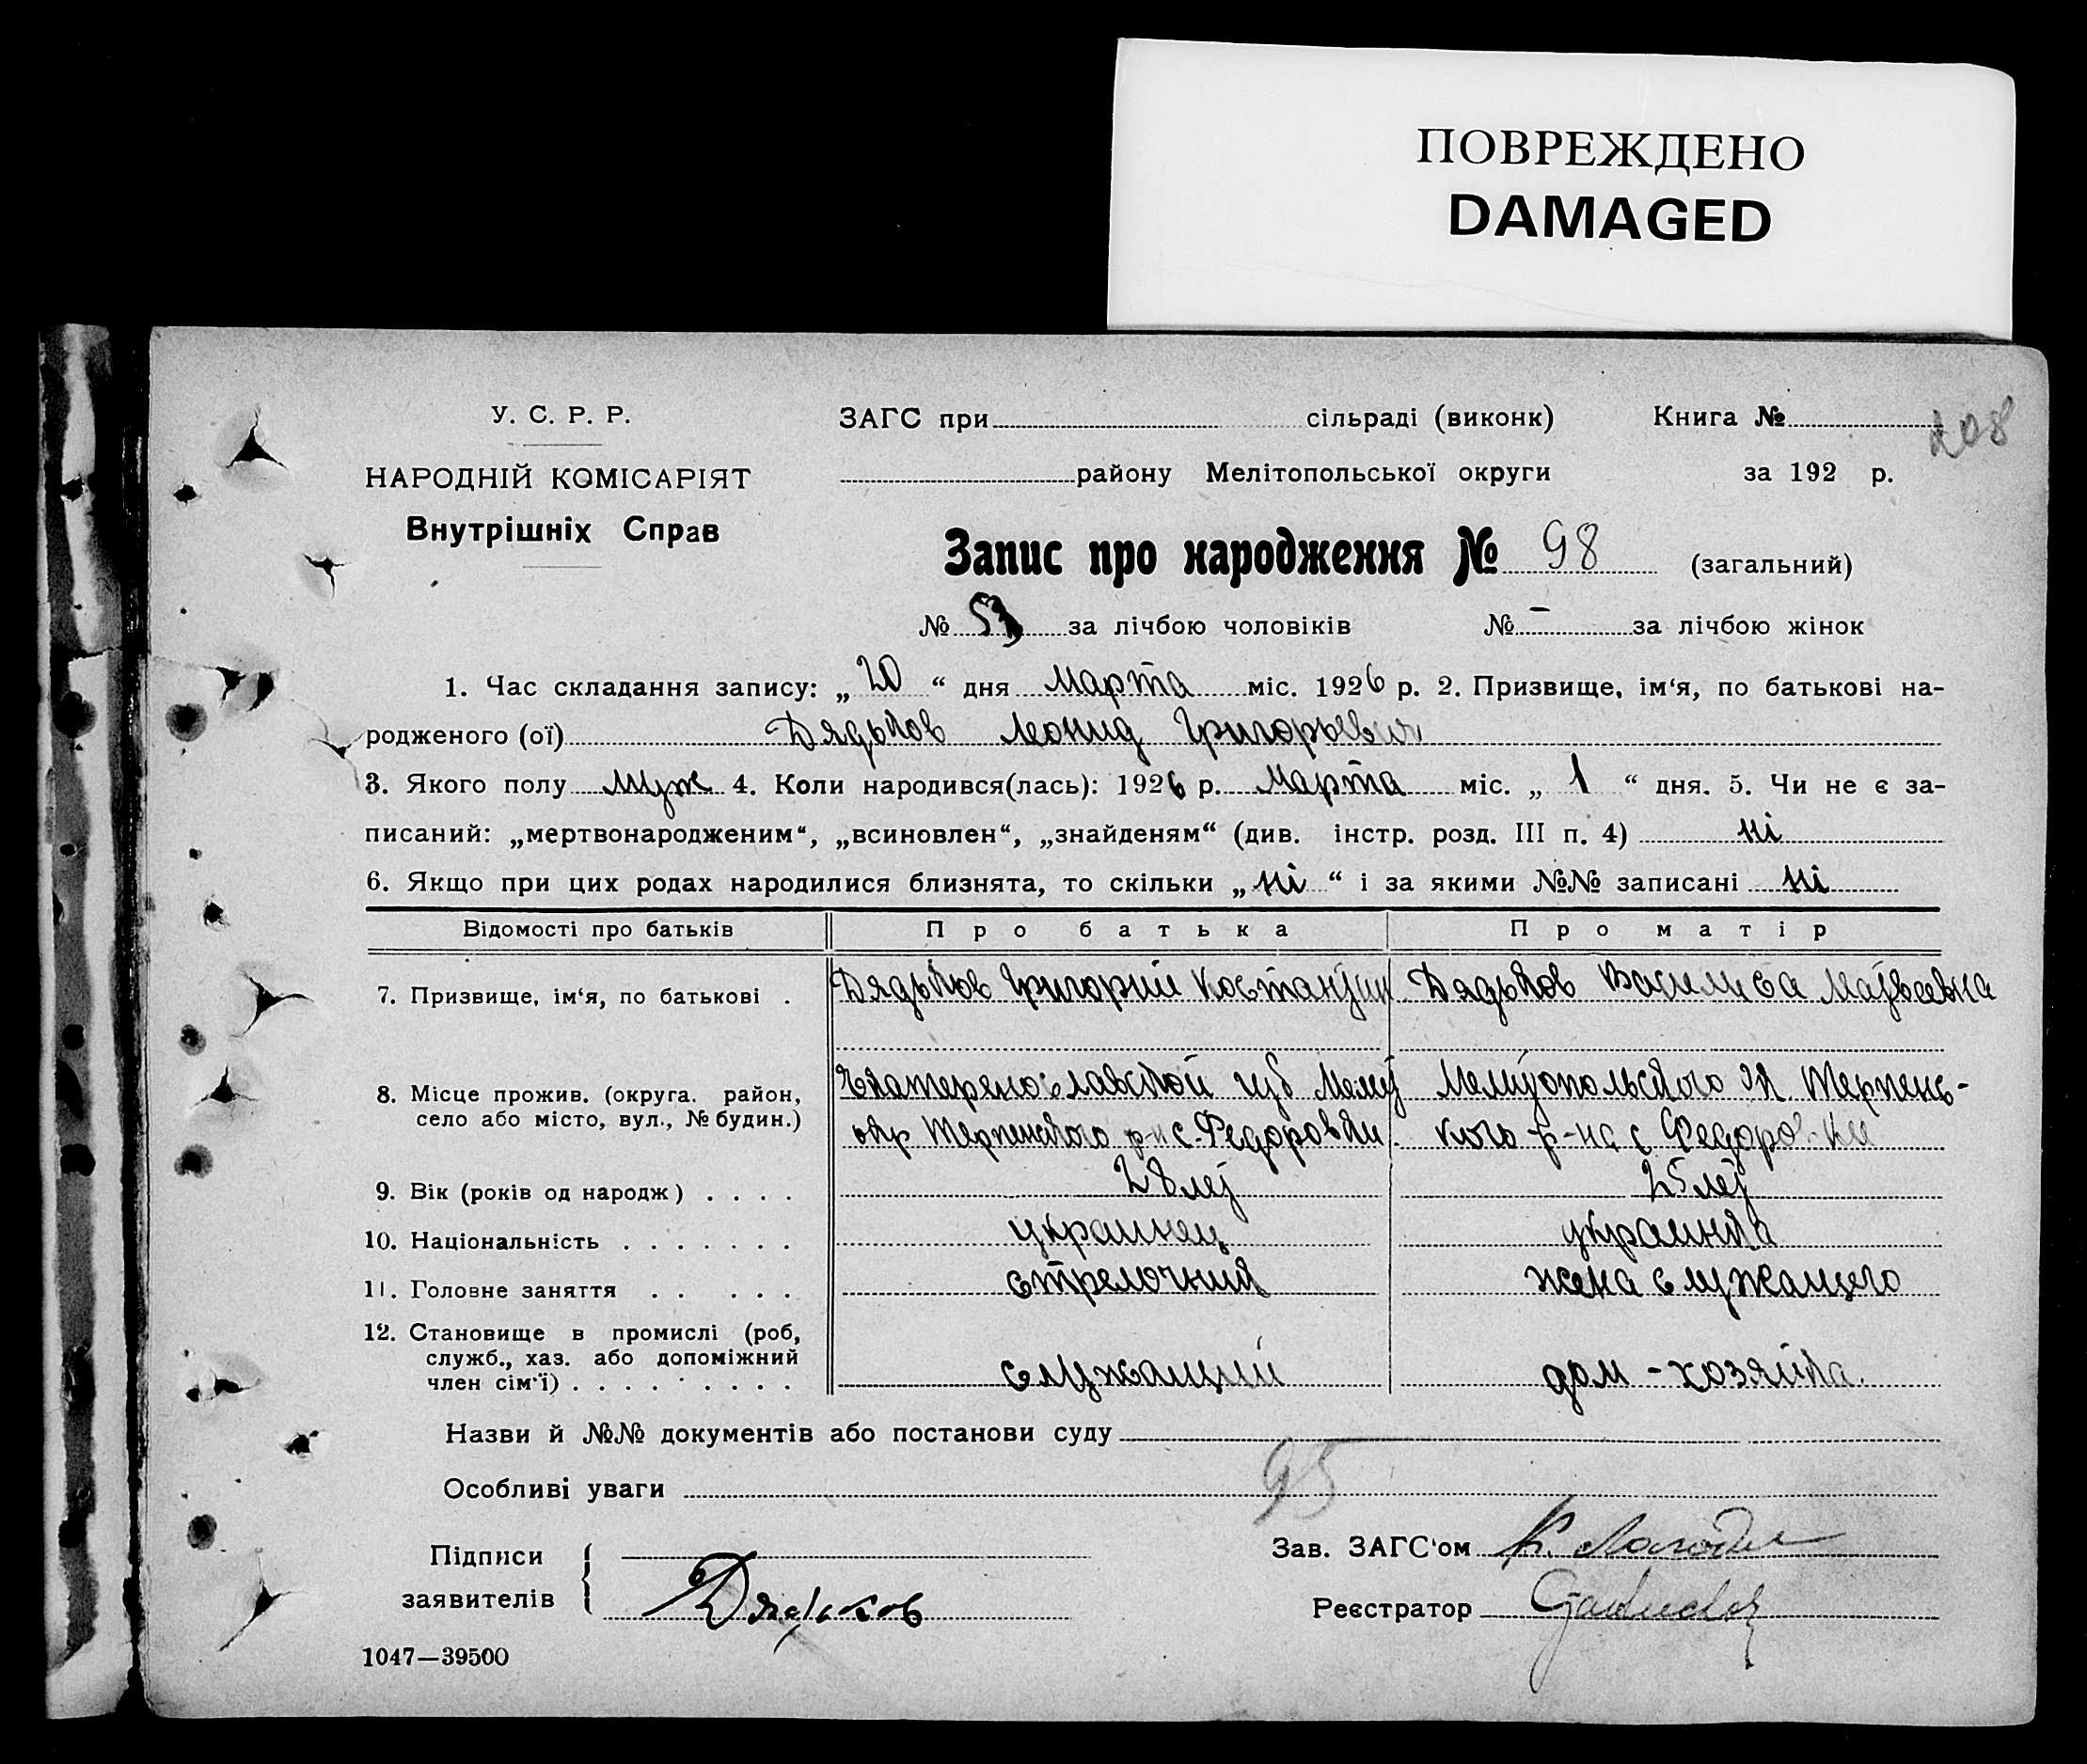 ПОВРЕЖДЕНО
DAMAGED
208
У. С. Р. Р.
ЗАГС при сільраді (виконк) Книга №
НАРОДНІЙ КОМІСАРІЯТ
району Мелітопольської округи за 192 р.
Внутрішніх Справ
Запис про народження № 98 (загальний)
№ 53 за лічбою чоловіків № – за лічбою жінок
1. Час складання запису: „ 20 “ дня Марта міс. 1926 р. 2. Призвище, ім‘я, по батькові на-
родженого (ої) Дядьков Леонид Григорьевич
3. Якого полу муж 4. Коли народився(лась): 1926 р. Марта міс. „ 1 “ дня. 5. Чи не є за-
писаний: „мертвонародженим“, „всиновлен“, „знайденям“ (див. інстр. розд. III п. 4) ні
6. Якщо при цих родах народилися близнята, то скільки „ ні “ і за якими №№ записані ні
Відомості про батьків Про батька Про матір
7. Призвище, ім‘я, по батькові . Дядьков Григорий Костантин Дядьков Василиса Матвеевна
8. Місце прожив. (округа. район, Екатеренославской губ Мелит Мелитопольского ок Терпенс-
село або місто, вул., № будин.) окр Терпенского р-н с. Федоровки кого р-на с Федоровки
9. Вік (років од народж) . . . . 28 лет 25 лет
10. Національність . . . . . . . украинец украинка
11. Головне заняття . . . . . стрелочник жена служащего
12. Становище в промислі (роб,
служб., хаз. або допоміжний
член сім‘ї) . . . . . . . . . служащий дом-хозяйка.
Назви й №№ документів або постанови суду
Особливі уваги 95
Підписи Зав. ЗАГС‘ом
заявителів Дядьков Реєстратор
1047—39500